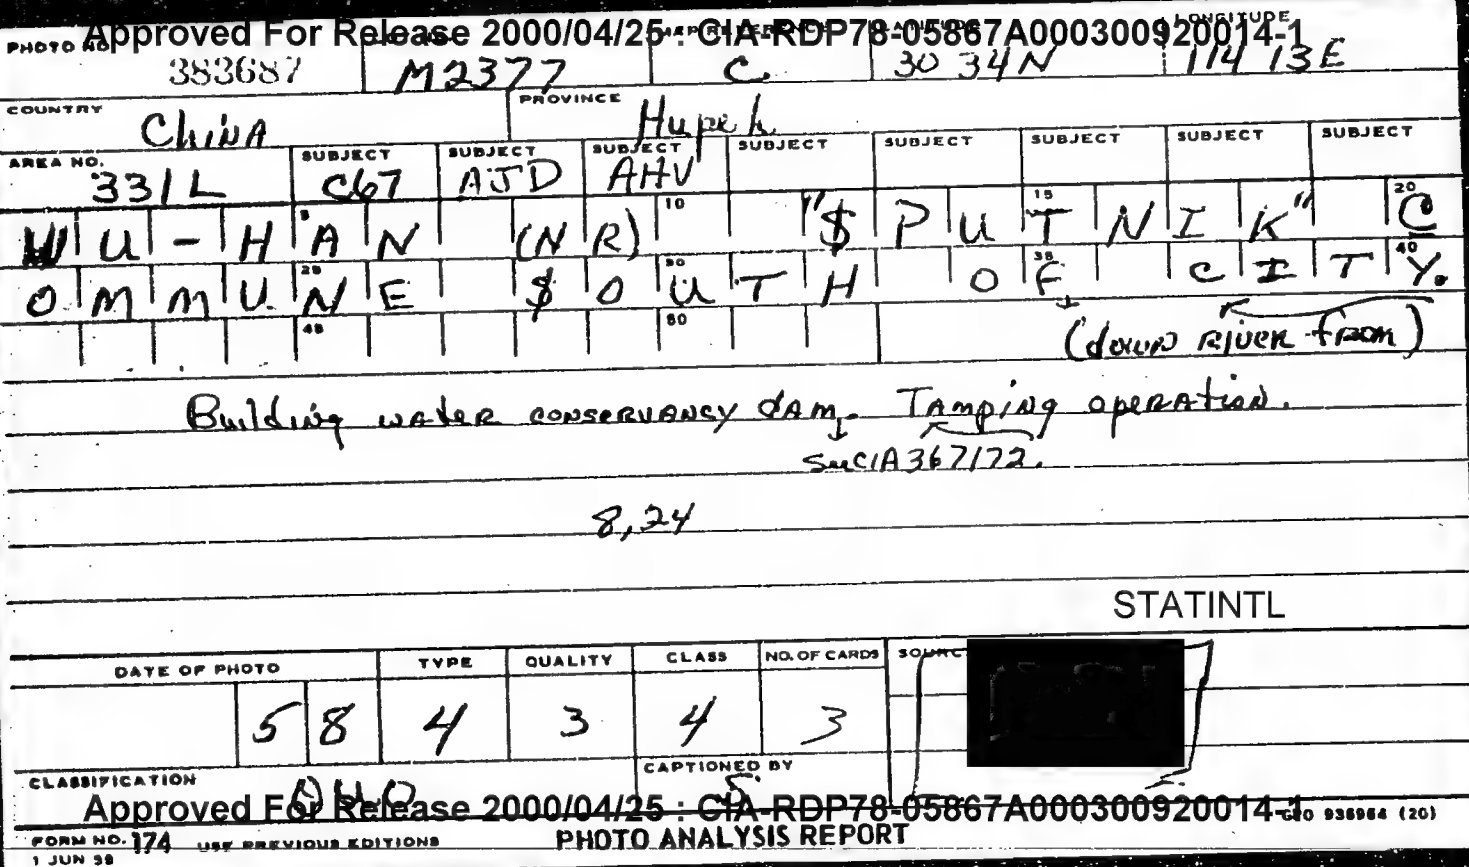 Approved For Release 2000/04/25 : CIA-RDP78-05867A000300920014-1
PHOTO NO. LONGITUDE
383687 M2377 C 30 34 N 114 13 E
COUNTRY PROVINCE
China Hupeh
AREA NO. SUBJECT SUBJECT SUBJECT SUBJECT SUBJECT SUBJECT SUBJECT SUBJECT
331L C67 AJD AHV
5 10 15 20
WU-HAN (NR) "$PUTNIK" C
25 30 35 40
OMMUNE $OUTH OF CITY.
45 50
(down river from)
Building water conservancy dam. Tamping operation.
See CIA 367172.
8,24
STATINTL
DATE OF PHOTO TYPE QUALITY CLASS NO. OF CARDS SOURC
58 4 3 4 3
CLASSIFICATION CAPTIONED BY
OUO 5.
Approved For Release 2000/04/25 : CIA-RDP78-05867A000300920014-1
936964 (20)
FORM NO. 174 USE PREVIOUS EDITIONS PHOTO ANALYSIS REPORT
1 JUN 59